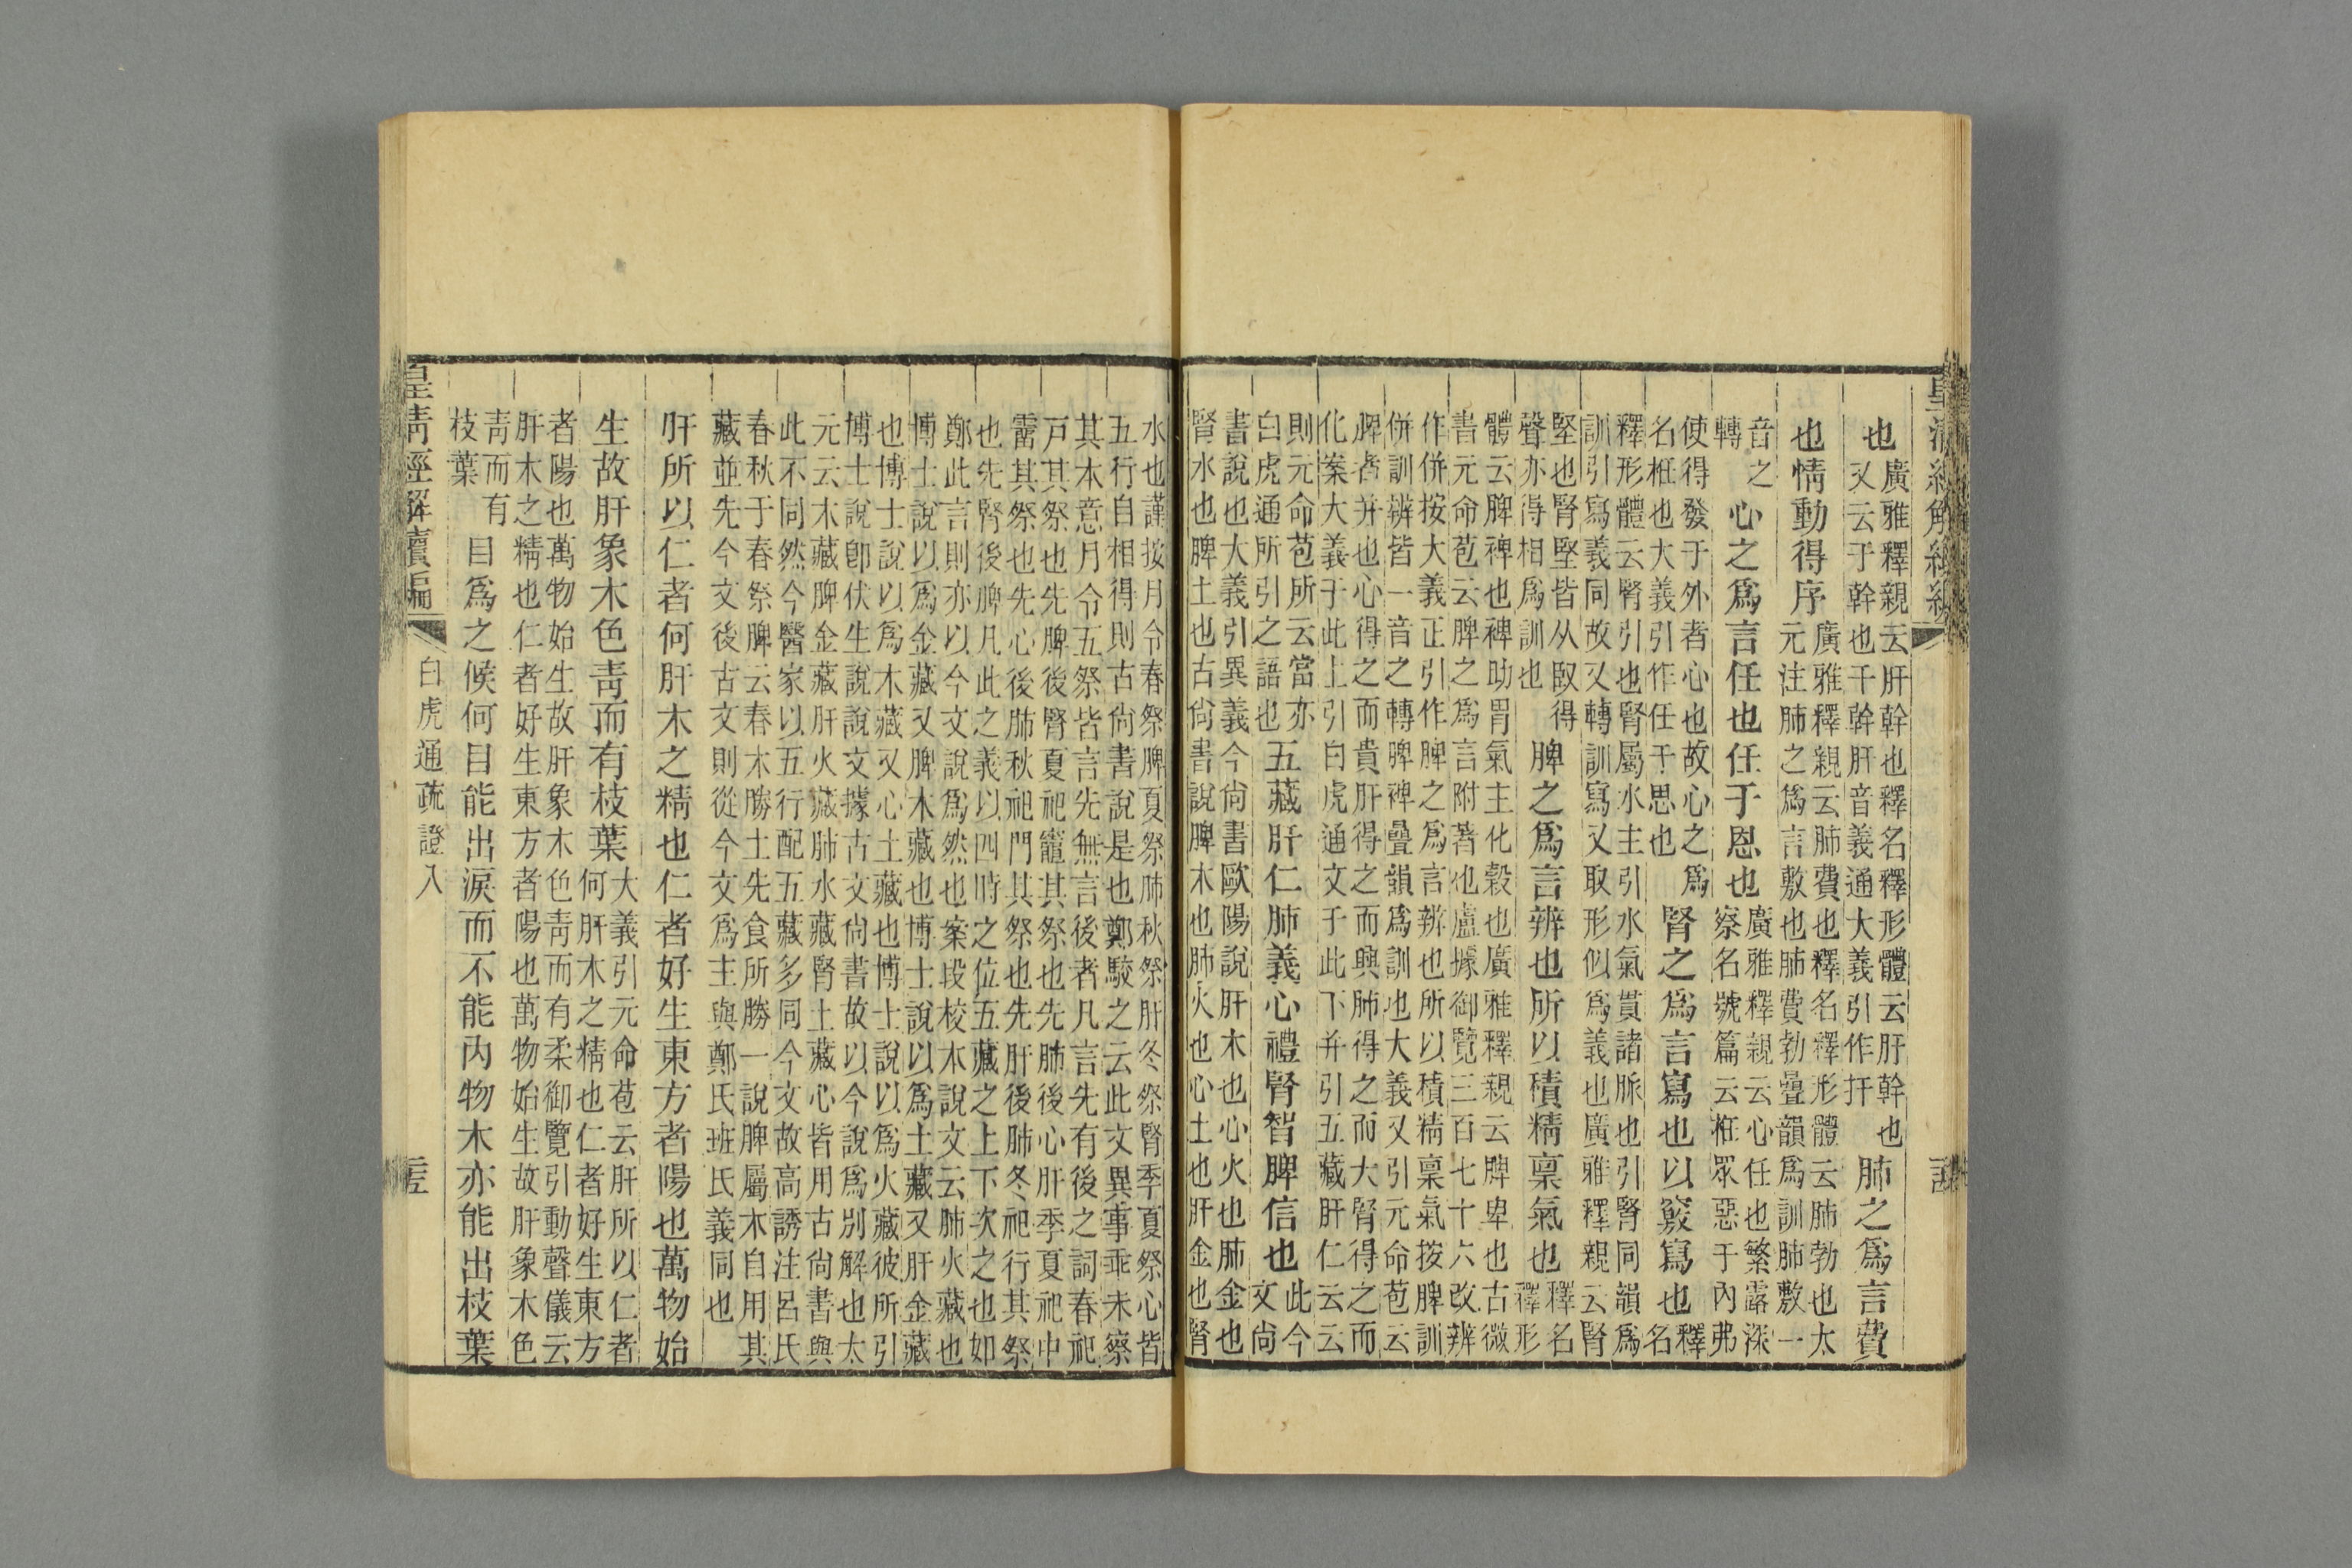 也
廣雅釋親云肝幹也釋名釋形體云肝幹也
又云于幹也干幹肝音義通大義引作扞
肺之爲言費
也情動得序
廣雅釋親云肺費也釋名釋形體云肺勃也太
元注肺之爲言敷也肺費勃疊韻爲訓肺敷一
音之
轉
心之爲言任也任于恩也
廣雅釋親云心任也繁露深
察名號篇云栣眾惡于內弗
使得發于外者心也故心之爲
名栣也大義引作任于思也
腎之爲言寫也以竅寫也
釋
名
釋形體云腎引也腎屬水主引水氣貫諸脈也引腎同韻爲
訓引寫義同故又轉訓寫又取形似爲義也廣雅釋親云腎
堅也腎堅皆从臤得
聲亦得相爲訓也
脾之爲言辨也所以積精稟氣也
釋名
釋形
體云脾裨也裨助胃氣主化穀也廣雅釋親云脾卑也古微
書元命苞云脾之爲言附著也盧據御覽三百七十六改辨
作併按大義正引作脾之爲言辨也所以積精稟氣按脾訓
併訓辨皆一音之轉脾裨疊韻爲訓也大義又引元命苞云
脾者并也心得之而貴肝得之而興肺得之而大腎得之而
化案大義于此上引白虎通文于此下并引五藏肝仁云云
則元命苞所云當亦
白虎通所引之語也
五藏肝仁肺義心禮腎智脾信也
此今
文尚
書說也大義引異義今尚書歐陽說肝木也心火也肺金也
腎水也脾土也古尚書說脾木也肺火也心土也肝金也腎
水也謹按月令春祭脾夏祭肺秋祭肝冬祭腎季夏祭心皆
五行自相得則古尚書說是也鄭駮之云此文異事乖未察
其本意月令五祭皆言先無言後者凡言先有後之詞春祀
戸其祭也先脾後腎夏祀竈其祭也先肺後心肝季夏祀中
霤其祭也先心後肺秋祀門其祭也先肝後肺冬祀行其祭
也先腎後脾凡此之義以四時之位五藏之上下次之也如
鄭此言則亦以今文說爲然也案段校本說文云肺火藏也
博士說以爲金藏又脾木藏也博士說以爲土藏又肝金藏
也博士說以爲木藏又心土藏也博士說以爲火藏彼所引
博士說卽伏生說說文據古文尚書故以今說爲別解也太
元云木藏脾金藏肝火藏肺水藏腎土藏心皆用古尚書與
此不同然今醫家以五行配五藏多同今文故高誘注呂氏
春秋于春祭脾云春木勝土先食所勝一說脾屬木自用其
藏並先今文後古文則從今文爲主與鄭氏班氏義同也
肝所以仁者何肝木之精也仁者好生東方者陽也萬物始
生故肝象木色靑而有枝葉
大義引元命苞云肝所以仁者
何肝木之精也仁者好生東方
者陽也萬物始生故肝象木色靑而有柔御覽引動聲儀云
肝木之精也仁者好生東方者陽也萬物始生故肝象木色
靑而有
枝葉
目爲之候何目能出淚而不能內物木亦能出枝葉
皇清經解續編
白虎通疏證八